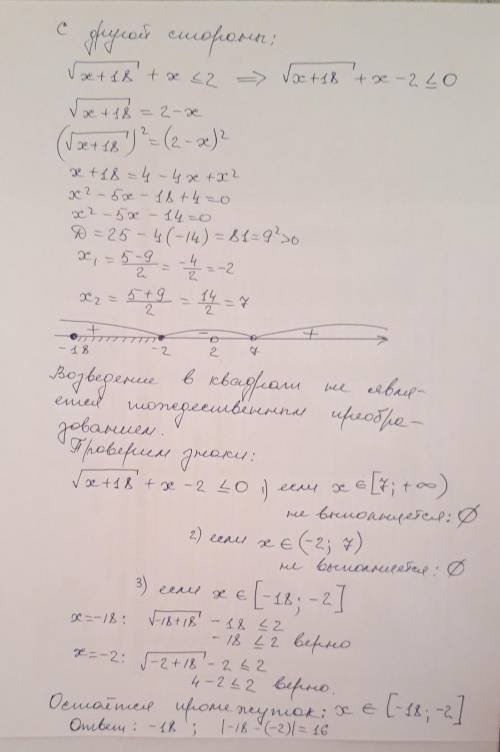 С другой стороны:
√(x+18) + x ≤ 2 ⟹ √(x+18) + x − 2 ≤ 0
√(x+18) = 2 − x
(√(x+18))² = (2 − x)²
x + 18 = 4 − 4x + x²
x² − 5x − 18 + 4 = 0
x² − 5x − 14 = 0
D = 25 − 4(−14) = 81 = 9² > 0
x₁ = (5−9)/2 = −4/2 = −2
x₂ = (5+9)/2 = 14/2 = 7
+ − +
−18 −2 2 7
Возведение в квадрат не явля-
ется тождественным преобра-
зованием.
Проверим знаки:
√(x+18) + x − 2 ≤ 0 1) если x ∈ [7; +∞)
не выполняется: ∅
2) если x ∈ (−2; 7)
не выполняется: ∅
3) если x ∈ [−18; −2]
x=−18: √(−18+18) − 18 ≤ 2
−18 ≤ 2 верно
x=−2: √(−2+18) − 2 ≤ 2
4 − 2 ≤ 2 верно.
Остаётся промежуток: x ∈ [−18; −2]
Ответ: −18 ; |−18 −(−2)| = 16